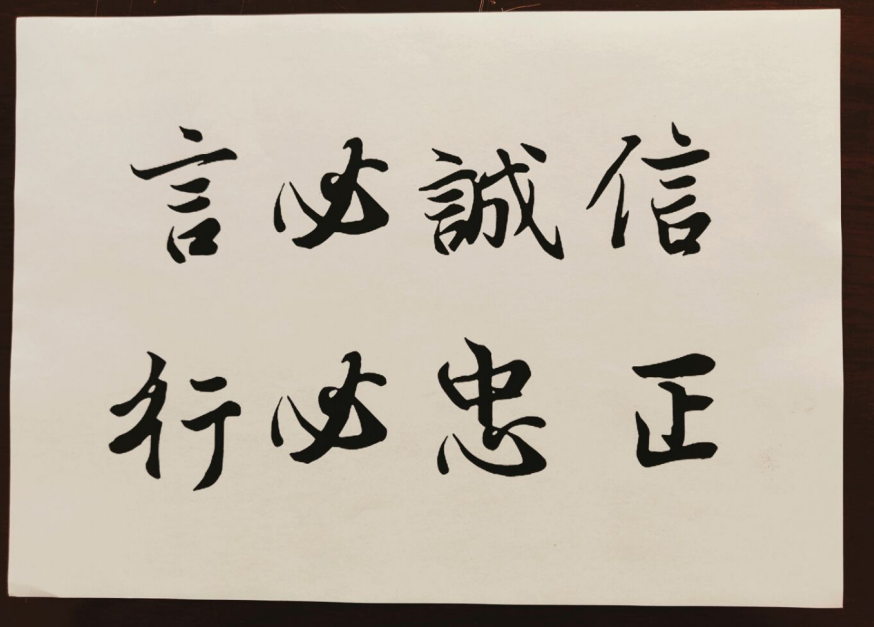 言必誠信
行必忠正